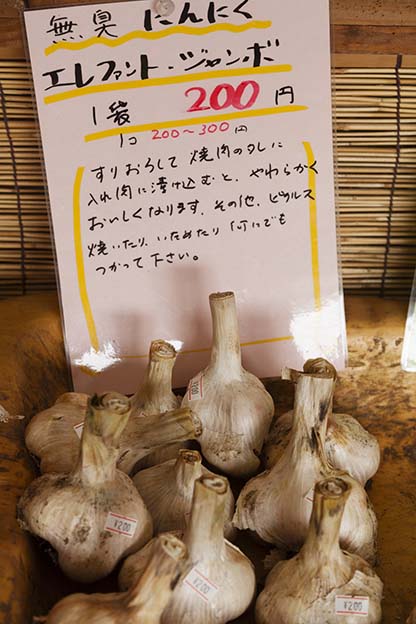 無臭 にんにく
エレファント・ジャンボ
1袋 200円
1コ 200～300円
すりおろして 焼肉のタレに
入れ肉に漬け込むと、やわらかく
おいしくなります。その他、ピクルス
焼いたり、いためたり 何にでも
つかって下さい。
¥200
¥200
¥200